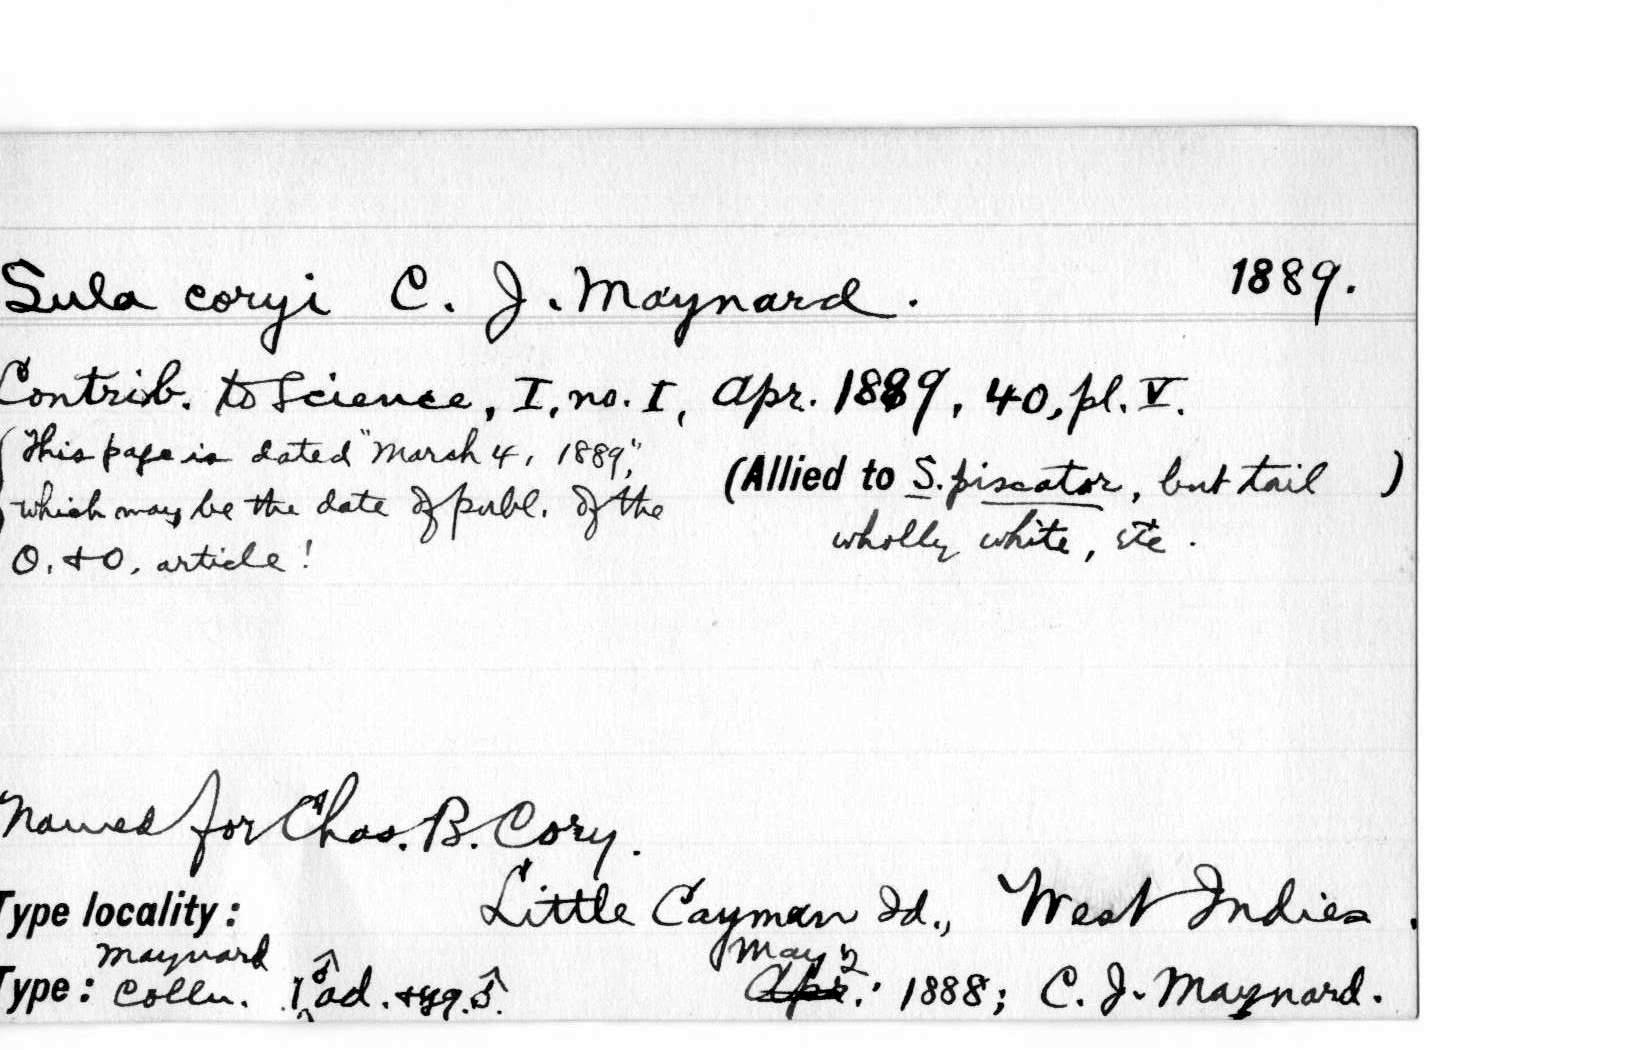 Sula coryi C. J. Maynard. 1889.
Contrib. to Science, I, no. I, Apr. 1889, 40, pl. V.
(This page is dated "March 4, 1889",
which may be the date of publ. of the
O. & O. article!
(Allied to S. piscator, but tail )
wholly white, etc.
Named for Chas. B. Cory.
Type locality: Little Cayman Id., West Indies.
Maynard May 2
Type: Colln. 1 ♂ ad. + yg. ♂. Apr. 1888; C. J. Maynard.